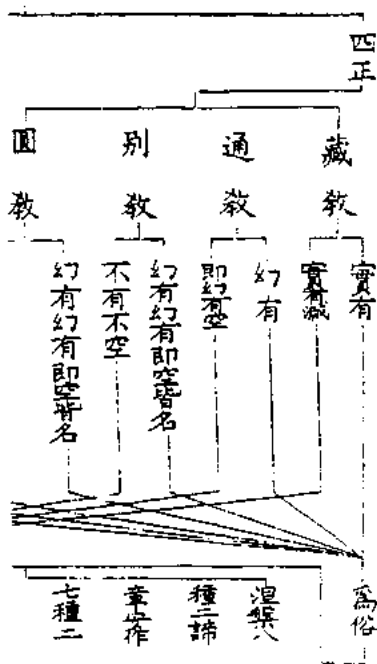 四正
藏教
通教
別教
圓教
實有
實有滅
幻有
即幻有空
幻有幻有即空皆名
不有不空
幻有幻有即空皆名
為俗
涅槃八
種二諦
章安作
七種二